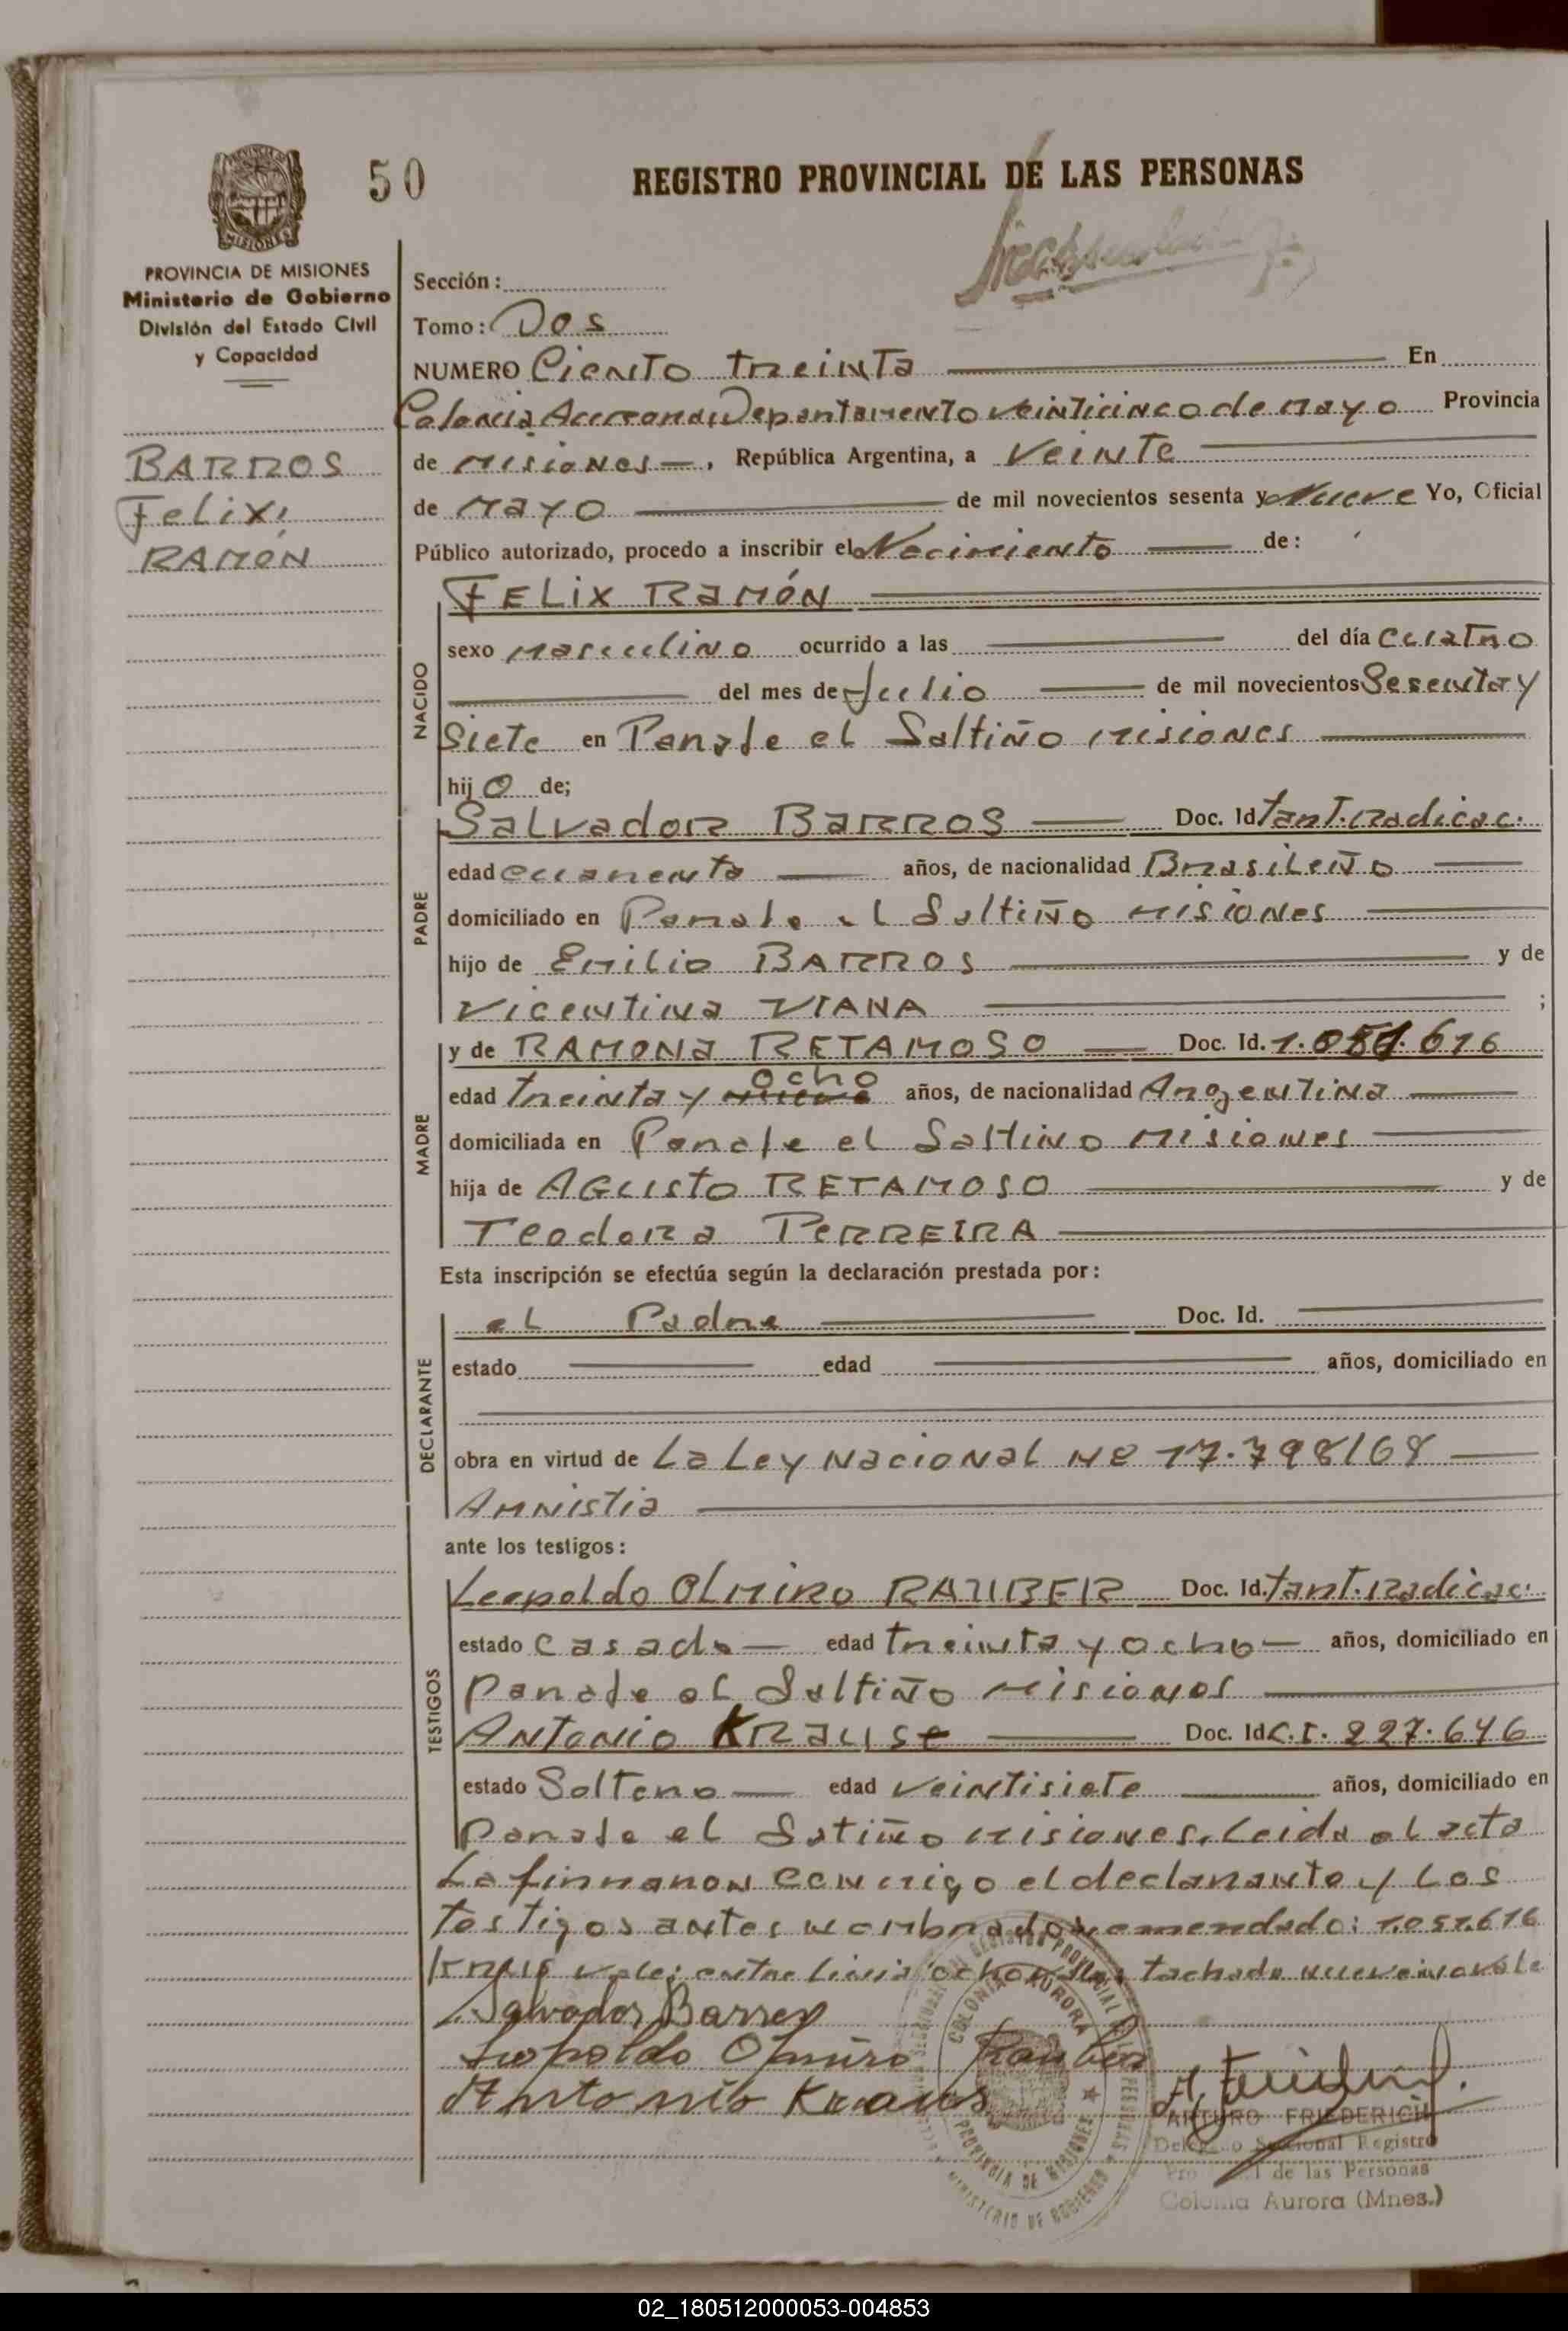 50
REGISTRO PROVINCIAL DE LAS PERSONAS
PROVINCIA DE MISIONES
Ministerio de Gobierno
División del Estado Civil
y Capacidad
BARROS
Felix,
RAMÓN
Sección:
Tomo: Dos
NUMERO Ciento treinta En
Colonia Aurora, Departamento veinticinco de Mayo Provincia
de Misiones, República Argentina, a Veinte
de Mayo de mil novecientos sesenta y Nueve Yo, Oficial
Público autorizado, procedo a inscribir el Nacimiento de:
NACIDO
FELIX RAMÓN
sexo masculino ocurrido a las del día cuatro
del mes de Julio de mil novecientos Sesenta y
Siete en Paraje el Saltiño Misiones
hijo de;
PADRE
Salvador BARROS Doc. Id tant. Radicac.
edad cuarenta años, de nacionalidad Brasileño
domiciliado en Paraje el Saltiño Misiones
hijo de Emilio BARROS y de
Vicentina VIANA ;
MADRE
y de RAMONA RETAMOSO Doc. Id. 1.051.616
ocho
edad treinta y nueve años, de nacionalidad Argentina
domiciliada en Paraje el Saltiño Misiones
hija de AGusto RETAMOSO y de
Teodora PERREIRA
Esta inscripción se efectúa según la declaración prestada por:
DECLARANTE
el Padre Doc. Id.
estado edad años, domiciliado en
obra en virtud de La Ley Nacional Nº 17.798/68
Amnistia
ante los testigos:
TESTIGOS
Leopoldo Olmiro RAUBER Doc. Id. tant. Radicac.
estado casado edad treinta y ocho años, domiciliado en
Paraje el Saltiño Misiones
Antonio KRAUSe Doc. Id C.I. 227.646
estado Soltero edad veintisiete años, domiciliado en
Paraje el Satiño Misiones. Leida el acta
La firmaron conmigo el declarante y Los
testigos antes nombrados, emendado: 1.051.616
vale; entre linia ocho vale, tachado nueve no vale
Salvador Barros
Leopoldo Olmiro Rauber
Antonio Kraus
COLONIA AURORA
PROVINCIA DE MISIONES
MINISTERIO DE GOBIERNO
ARTURO FRIEDERICH
Delegado Seccional Registro
de las Personas
Colonia Aurora (Mnes.)
02_180512000053-004853